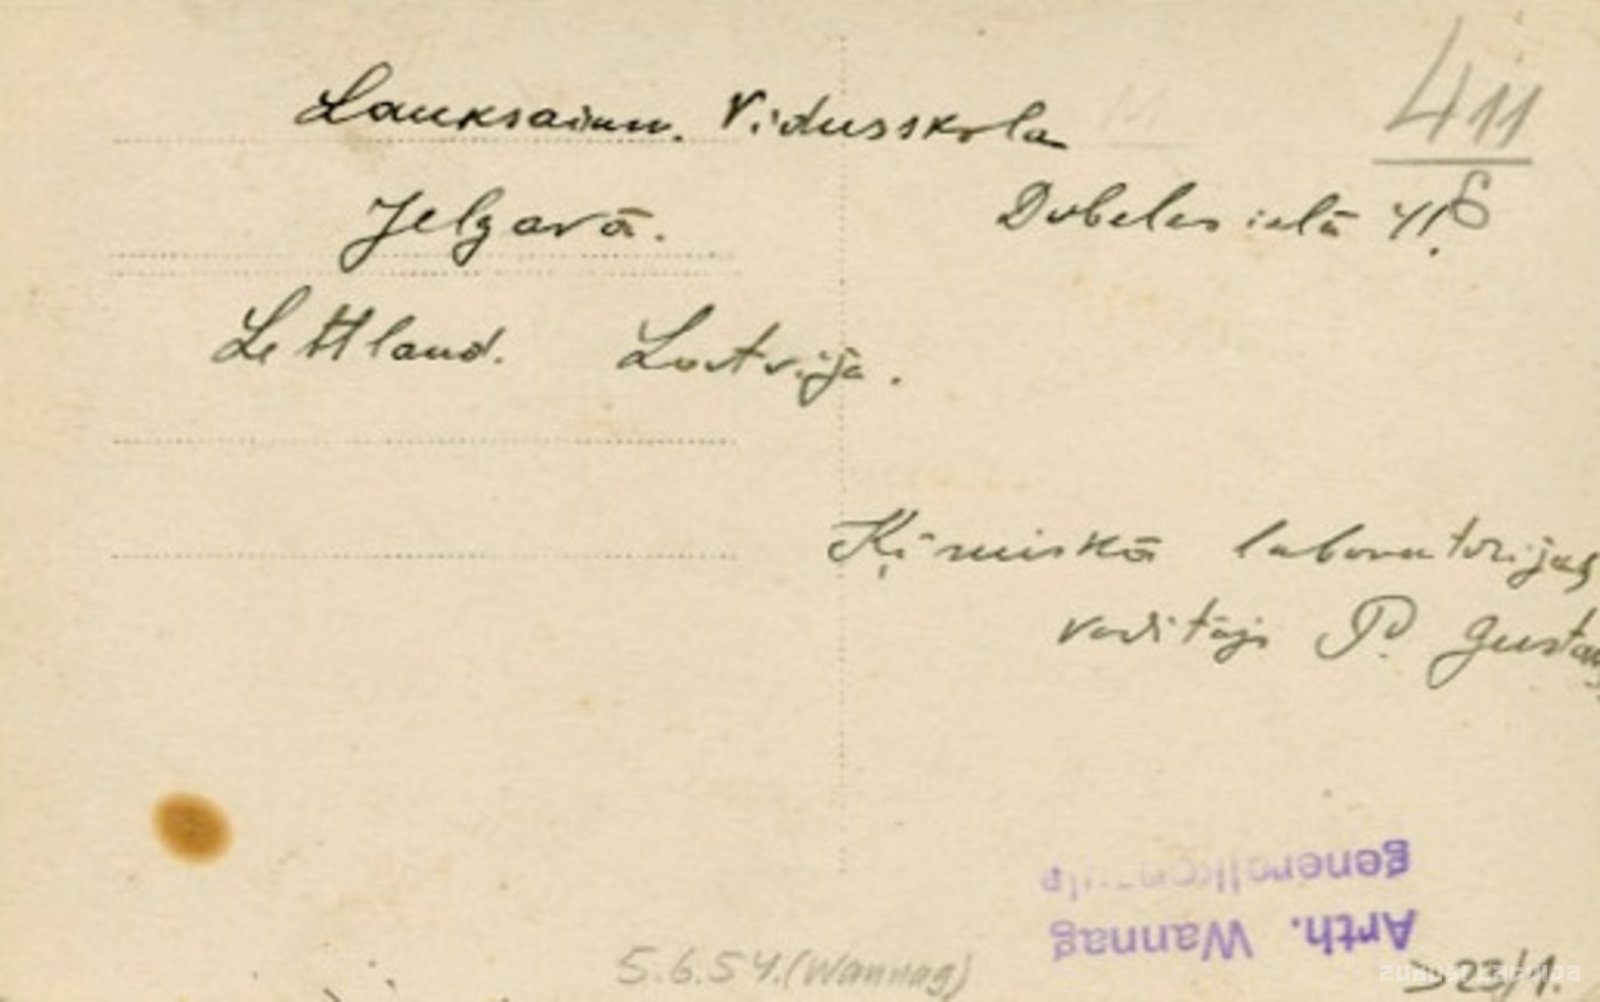 Lauksaimn. Vidusskola
411
Jelgavā.
Dobeles ielā 41.
6
Lettland. Latvija.
Ķīmiskā laboratorijas
vadītājs P. Gustav
Arth. Wannag
5.6.54. (Wannag)
D23/1.
zudusilatvija